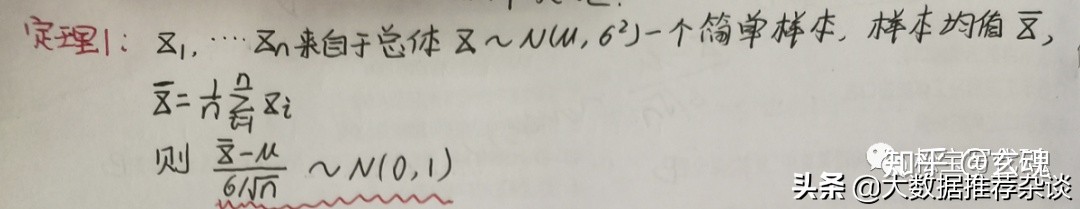 定理1: X₁, ⋯ Xn 来自于总体 X ~ N(μ, σ²) 一个简单样本, 样本均值 X̄,
X̄ = 1/n ∑ᵢ₌₁ⁿ Xᵢ
则 (X̄ - μ)/(σ/√n) ~ N(0, 1)
知乎 @玄魂
头条 @大数据推荐杂谈